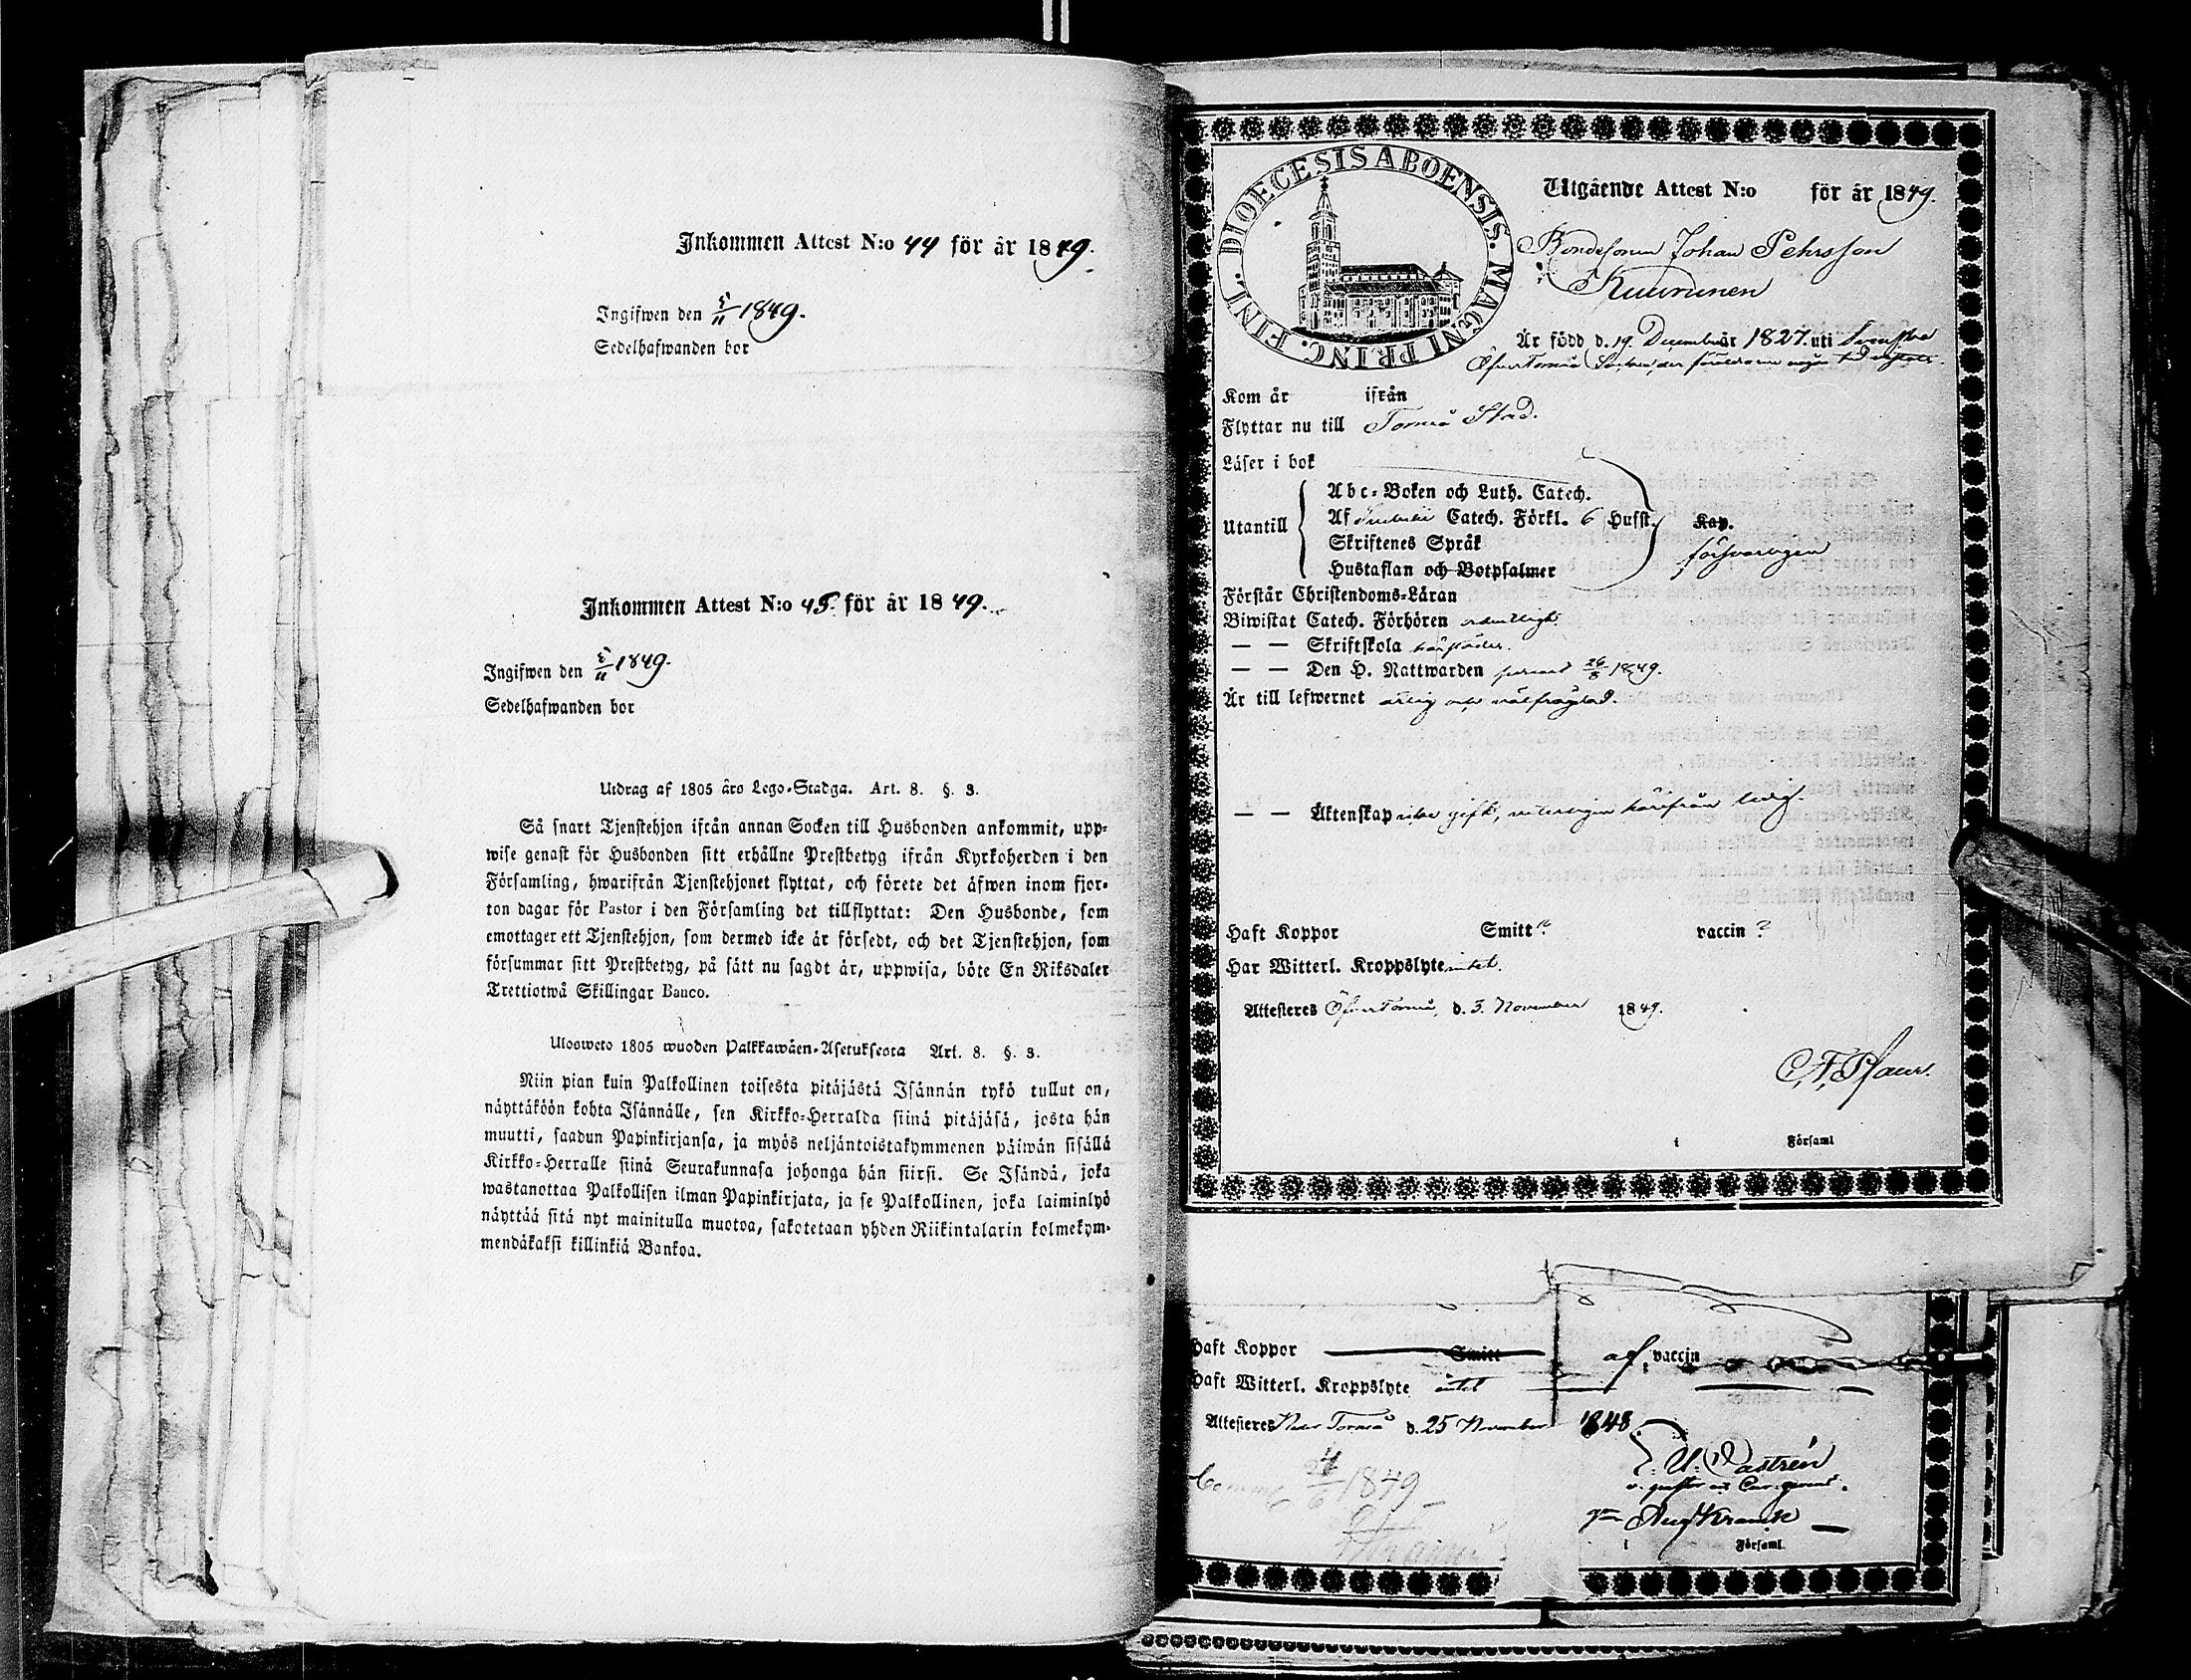 Inkommen Attest N:o 44 för år 1849.
Ingifwen den 5/11 1849.
Sedelhafwanden bor
Inkommen Attest N:o 45. för år 1849.
Ingifwen den 5/11 1849.
Sedelhafwanden bor
Utdrag af 1805 års Lego-Stadga. Art. 8. §. 3.
Så snart Tjenstehjon ifrån annan Socken till Husbonden ankommit, upp-
wise genast för Husbonden sitt erhållne Prestbetyg ifrån Kyrkoherden i den
Församling, hwarifrån Tjenstehjonet flyttat, och förete det äfwen inom fjor-
ton dagar för Pastor i den Församling det tillflyttat: Den Husbonde, som
emottager ett Tjenstehjon, som dermed icke är försedt, och det Tjenstehjon, som
försummar sitt Prestbetyg, på sätt nu sagdt är, uppwisa, böte En Riksdaler
Trettiotwå Skillingar Banco.
Ulosweto 1805 wuoden Palkkawäen-Asetuksesta Art. 8. §. 3.
Niin pian kuin Palkollinen toisesta pitäjästä Isännän tykö tullut on,
näyttäköön kohta Isännälle, sen Kirkko-Herralda siinä pitäjäsä, josta hän
muutti, saadun Papinkirjansa, ja myös neljäntoistakymmenen päiwän sisällä
Kirkko-Herralle siinä Seurakunnasa johonga hän siirsi. Se Isändä, joka
wastanottaa Palkollisen ilman Papinkirjata, ja se Palkollinen, joka laiminlyö
näyttää sitä nyt mainitulla muotoa, sakotetaan yhden Riikintalarin kolmekym-
mendäkaksi killinkiä Bankoa.
DIOECESIS ABOENSIS. MAGNI PRINC. FINL.
Utgående Attest N:o för år 1849.
Bondesonen Johan Pehrsson
Kuurunen
Är född d. 19. December år 1827. uti Svenska
ÖfverTorneå Socken, der föräldrarne någon tid vistats.
Kom år ifrån
Flyttar nu till Torneå Stad.
Läser i bok
Utantill
Abc-Boken och Luth. Catech.
Af Catech. Förkl. 6 Hufst. Kap.
Skriftenes Språk
försvarligen
Hustaflan och Botpsalmer
Förstår Christendoms-Läran
Biwistat Catech. Förhören ordentligt
— — Skriftskola härstädes.
— — Den H. Nattwarden senast 26/8 1849.
Är till lefwernet ärlig och välfräjdad.
— — Äktenskap icke gift, veterligen härifrån ledig.
Haft Koppor Smitt vaccin
Har Witterl. Kroppslyte intet.
Attesteras ÖfverTorneå, d. 3. November 1849.
i Församl
Haft Koppor Smitt af vaccin
Haft Witterl. Kroppslyte intet
Attesteras Neder Torneå d. 25 November 1848
E. U. Castrén
1849
i Församl.